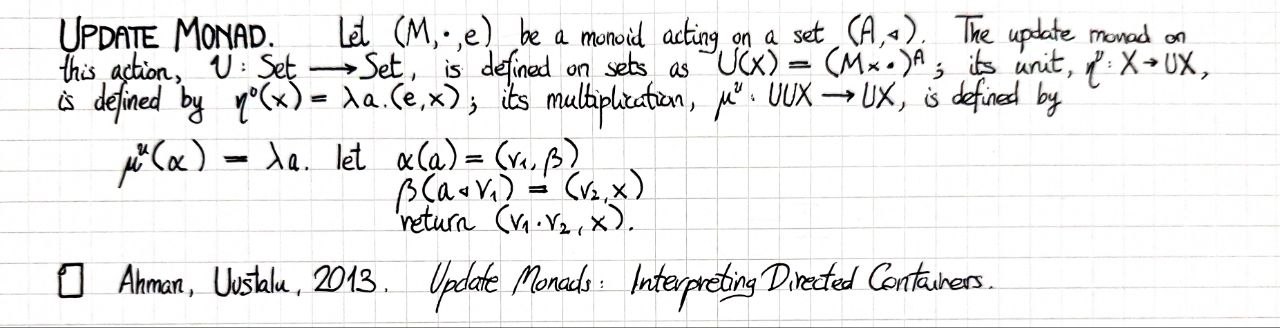 UPDATE MONAD. Let (M,·,e) be a monoid acting on a set (A,◁). The update monad on
this action, U : Set ⟶ Set, is defined on sets as U(X) = (M×•)ᴬ; its unit, ηᵁ: X → UX,
is defined by ηᵁ(x) = λa.(e,x); its multiplication, μᵁ: UUX → UX, is defined by
μᵁ(α) = λa. let α(a) = (v₁, β)
β(a ◁ v₁) = (v₂,x)
return (v₁·v₂, x).
Ahman, Uustalu, 2013. Update Monads: Interpreting Directed Containers.